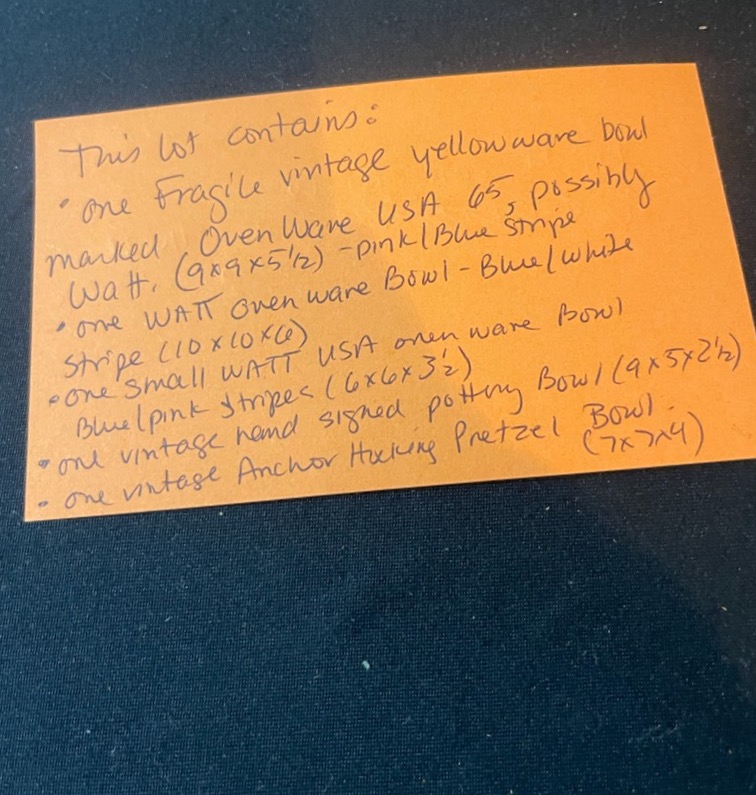 This lot contains:
• one Fragile vintage yellowware bowl
marked Oven Ware USA 65, possibly
Watt. (9x9x5½) - pink/Blue Stripe
• one WATT oven ware Bowl - Blue/white
Stripe (10x10x6)
• one small WATT USA oven ware Bowl
Blue/pink Stripes (6x6x3½)
• one vintage hand signed pottery Bowl (9x5x2½)
• one vintage Anchor Hocking Pretzel Bowl.
(7x7x4)